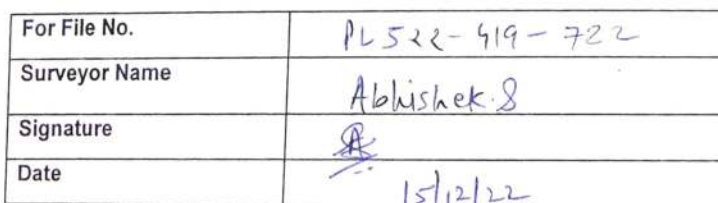 For File No. PL522-419-722
Surveyor Name Abhishek.S
Signature
Date 15/12/22